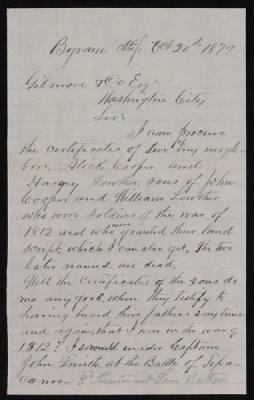 Byram Miss Oct 20th 1879
Gilmore & Co Esqr
Washington City
Sir
I can procure
the certificates of two my neigh-
bors. Alick Cooper and
Harvey Lowther, sons of John
Cooper and William Lowther
who were soldiers of the war of
1812 and who were granted their land
script, which I can also get, the two
later named are dead,
Will the certificates of the sons do
me any good, when they testify to
having heard their fathers say time
and again, that I was in the war of
1812? I served under Captain
John Smith, at the Battle of Tipa-
canoe